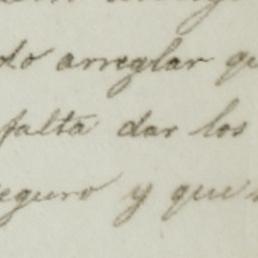 do arreglar q
falta dar los
eguro y que